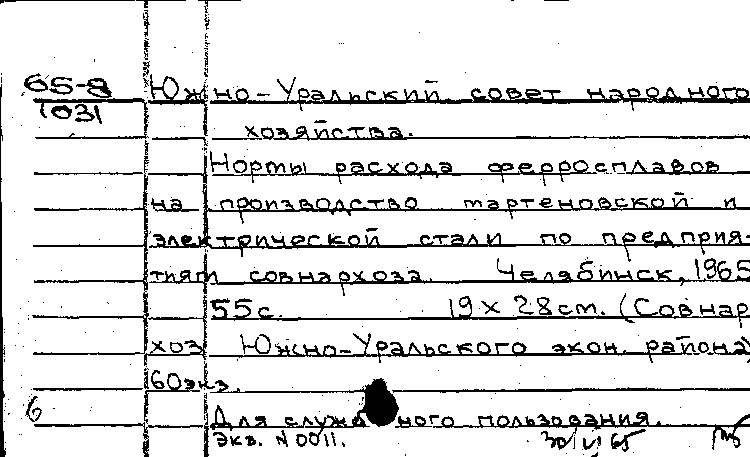 65-8 Южно-Уральский совет народного
1031 хозяйства.
Нормы расхода ферросплавов
на производство мартеновской и
электрической стали по предприя-
тиям совнархоза. Челябинск, 1965
55с. 19 х 28см. (Совнар
хоз Южно-Уральского экон. района)
60экз.
6 Для служебного пользования.
Экз. N 0011. 30/VI 65